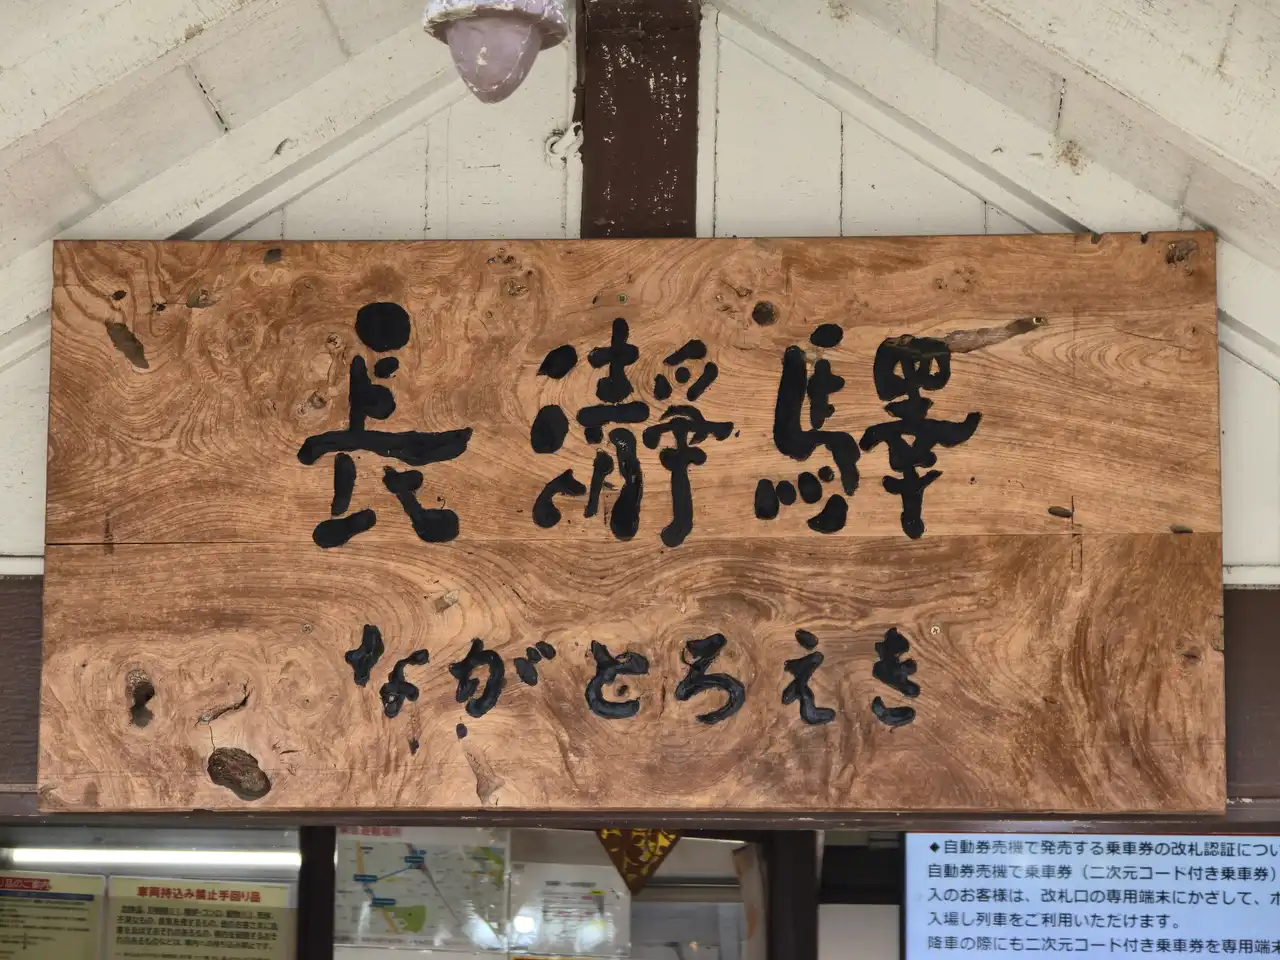 長瀞驛
ながとろえき
車両持込み禁止手回り品
◆自動券売機で発売する乗車券の改札認証につい
自動券売機で乗車券(二次元コード付き乗車券)
入のお客様は、改札口の専用端末にかざして、ホ
入場し列車をご利用いただけます。
降車の際にも二次元コード付き乗車券を専用端末